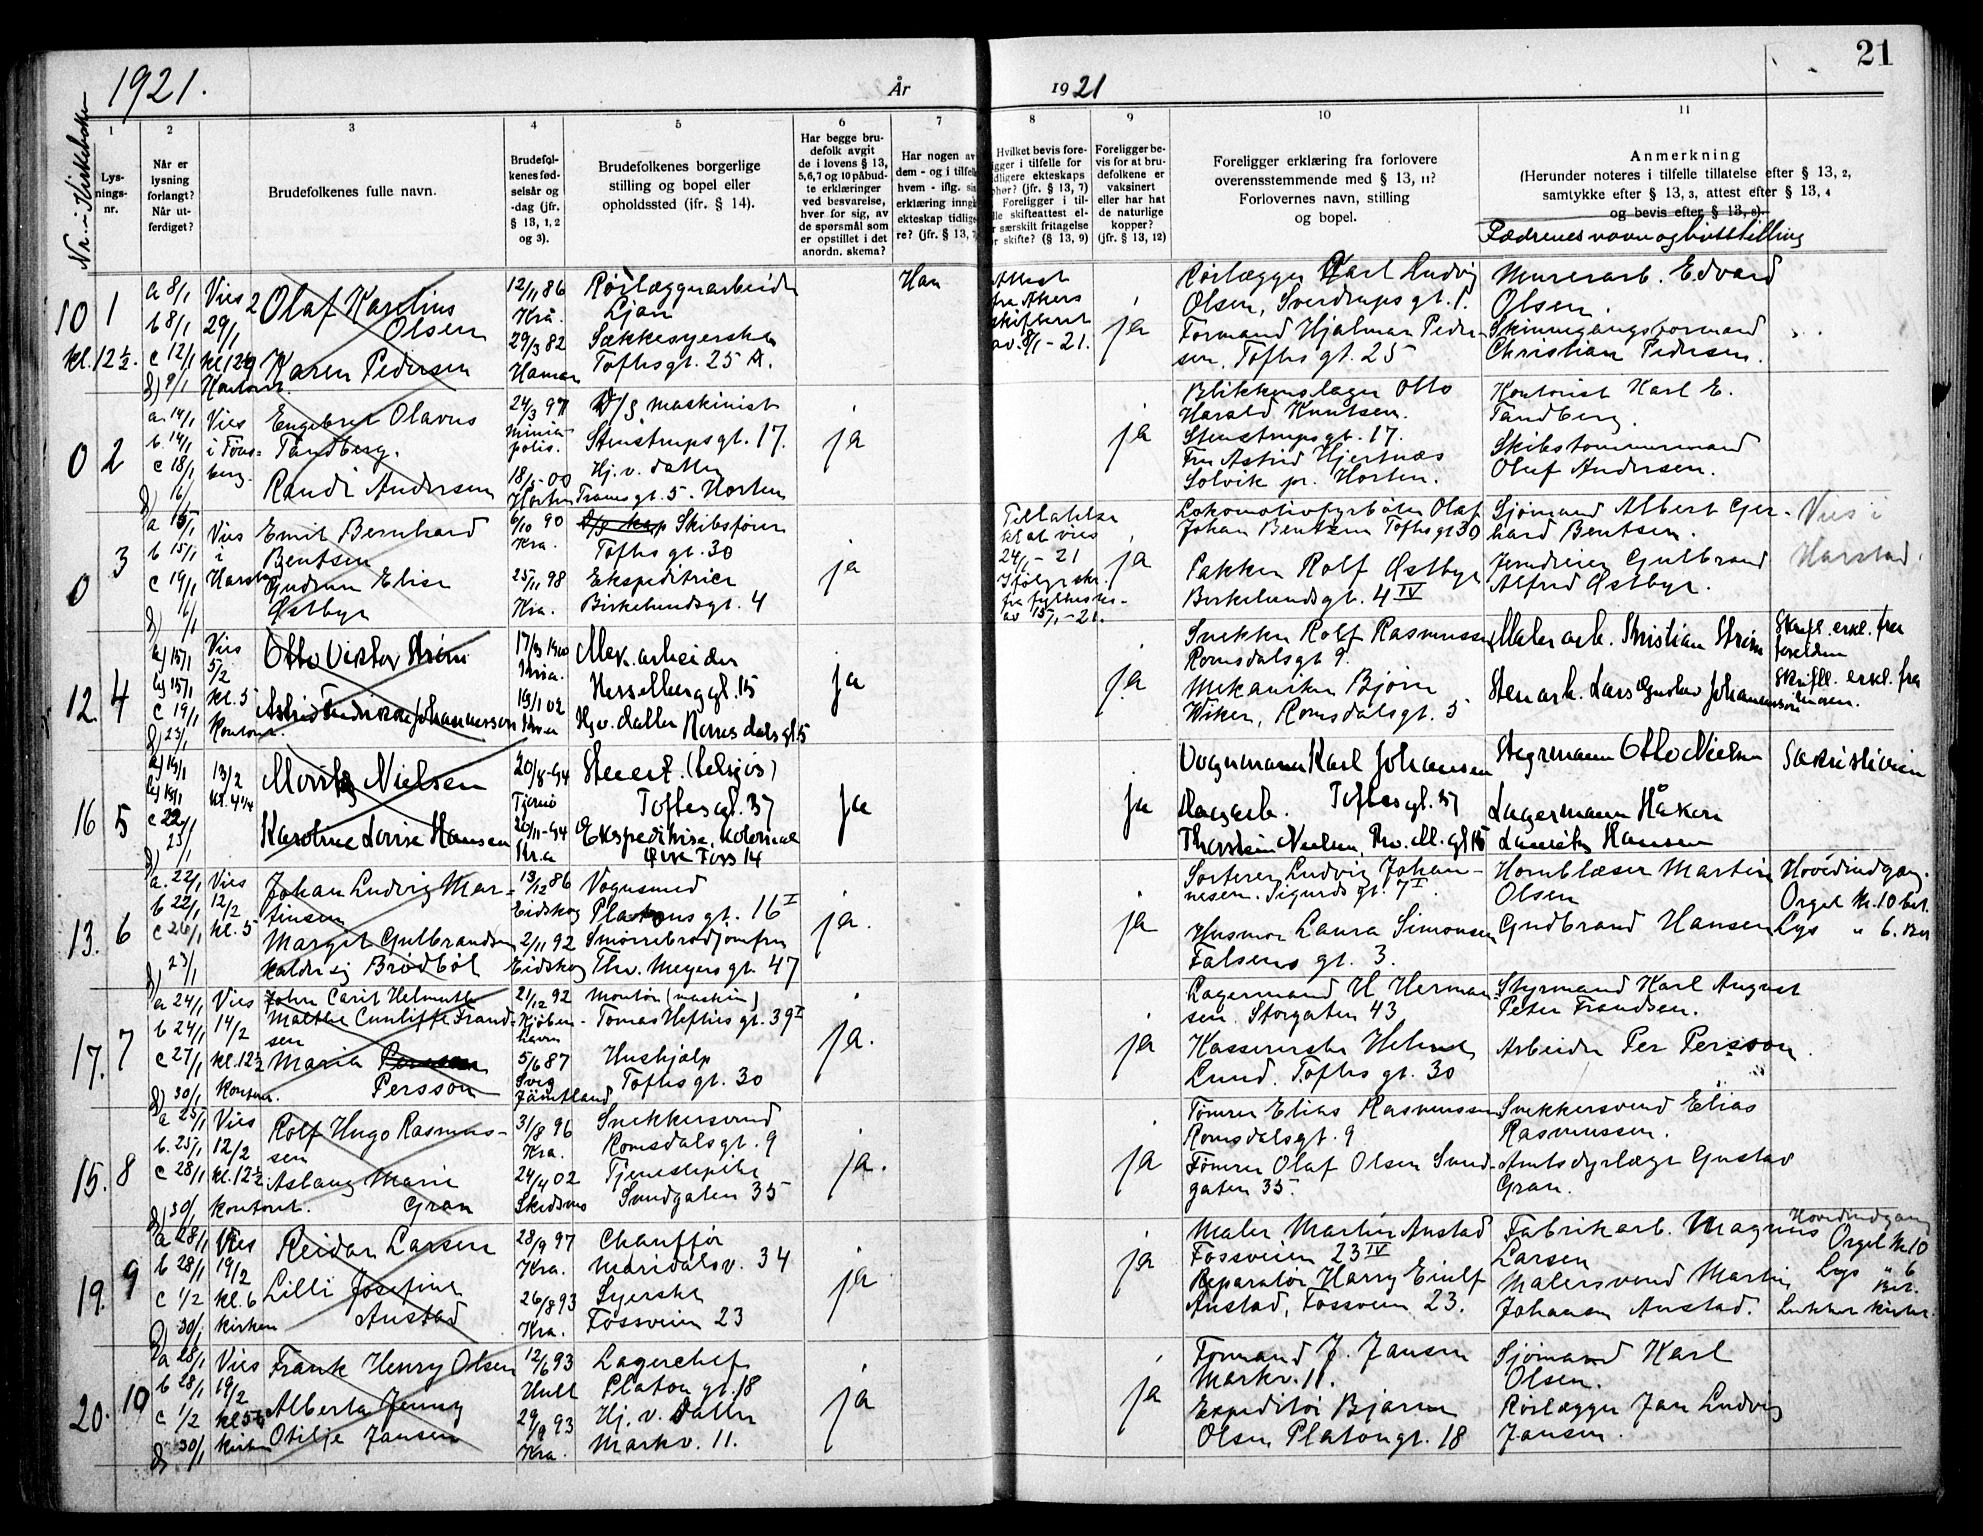 1921.
År
19 21
21
Nr. i Kirkeboken
1
Lysnings-
nr.
2
Når er
lysning
forlangt?
Når ut-
ferdiget?
3
Brudefolkenes fulle navn.
4
Brudefol-
kenes fød-
selsår og
-dag (jfr.
§ 13, 1, 2
og 3).
5
Brudefolkenes borgerlige
stilling og bopel eller
opholdssted (jfr. § 14).
6
Har begge bru-
defolk avgit
de i lovens § 13,
5, 6, 7 og 10 påbud-
te erklæringer
ved besvarelse,
hver for sig, av
de spørsmål som
er opstillet i det
anordn. skema?
7
Har nogen av
dem - og i tilfelle
hvem - iflg. sin
erklæring inngått
ekteskap tidlige-
re? (jfr. § 13, 7
8
Hvilket bevis fore-
ligger i tilfelle for
tidligere ekteskaps
ophør? (jfr. § 13, 7)
Foreligger i til-
felle skifteattest el-
ler særskilt fritagelse
for skifte? (§ 13, 9)
9
Foreligger be-
vis for at bru-
defolkene er
vaksinert
eller har hat
de naturlige
kopper?
(jfr. § 13, 12)
10
Foreligger erklæring fra forlovere
overensstemmende med § 13, 11?
Forlovernes navn, stilling
og bopel.
11
Anmerkning
(Herunder noteres i tilfelle tillatelse efter § 13, 2,
samtykke efter § 13, 3, attest efter § 13, 4
og bevis efter § 13, 8).
Fædrenes navn og livsstilling
10 1
kl. 12½.
a 8/1 Vies
b 8/1 29/1
c 12/1 kl 12½
d) 9/1 Kontoret.
Olaf Karelius
Olsen
Karen Pedersen
12/11 86
Kra.
29/3 82
Hamar
Rørlæggerarbeider
Ljan
Sækkesyerske
Toftesgt. 25 A.
Han
Attest
fra Akers
skifteret
av 8/1 - 21.
ja
Rørlægger Karl Ludvig
Olsen, Sverdrupsgt. 1.
Formand Hjalmar Peder-
sen, Toftesgt. 25
Murerarb. Edvard
Olsen.
Skinnegangsformand
Christian Pedersen.
0 2
a. 14/1 Vies
b. 14/1 i Tøns-
c 18/1 berg.
d) 16/1
Engebret Olavus
Tandberg.
Randi Andersen
24/3 97
Minia-
polis.
18/5-00
Horten
D/S maskinist
Stenstrupsgt. 17.
Hj. v. datter
Tramsgt. 5. Horten
ja
ja
Blikkenslager Otto
Harald Knutsen.
Stenstrupsgt. 17.
Fru Astrid Hjertnæs
Solvik pr. Horten.
Kontorist Karl E.
Tandberg.
Skibstømmermand
Oluf Andersen.
0 3
a 15/1 Vies
b 15/1 i
c 19/1 Harstad
d) 16/1
Emil Bernhard
Bentsen
Gudrun Elise
Østbye
6/10 90
Kra.
25/11 98
Kra.
Skibsfører
Toftes gt. 30
Ekspeditrice
Birkelundsgt. 4
ja
Tillatelse
til at vies
24/1 - 21
Ifølge skr.
fra fylkesm.
av 15/1 - 21.
ja
Lokomotivfyrbøter Olaf
Johan Bentzen Toftesgt 30
Pakker Rolf Østbye
Birkelundsgt. 4 IV
Sjømand Albert Ger-
hard Bentsen.
Jerndreier Gulbrand
Alfred Østbye.
Vies i
Harstad.
12. 4
a) 15/1 Vies
b) 15/1 5/2
c 19/1 kl. 5
d) 23/1 kontoret.
Otto Victor Strøm
Astrid Fredrikke Johannesson
17/3 1900
Kria.
19/1 02
Kria
Mek. arbeider
Hesselberg gt. 15
Hj. v. datter Romsdals gt. 5
ja
ja
Snekker Rolf Rasmussen
Romsdalsgt 9.
Mekaniker Bjørn
Wiken, Romsdalsgt. 5
Malerarb. Kristian Strøm
Stenarb. Lars Gustav Johannesson
Skriftl. erkl. fra
forældrene
Skriftl. erkl. fra
moren.
16 5
a) 19/1 13/2
b) 19/1 kl. 4¼
c 22/1
d) 23/1
Moritz Nielsen
Karoline Lovise Hansen
20/8-94
Tjømø
20/11-94
Kr.a
Stuert. (tilsjøs)
Toftesgt. 37
Ekspeditrise, kolonial
Øvre Foss 14
ja
ja
Vognmann Karl Johansen
Toftesgt. 37
Thorstein Nielsen, Thv. M. gt 15
Styrmann Otto Nielsen
Lagermann Håkon
Lauritz Hansen
Sakristiveien
13. 6
a. 22/1 Vies
b 22/1 12/2
c 26/1 kl. 5
d) 23/1
Johan Ludvig Mar-
tinsen
Margit Gulbrandsen
kalder sig Brødbøl
13/12 86
Eidskog
2/11 92
Eidskog
Vognsmed
Platous gt. 16 I
Smørrebrødjomfru
Thv. Meyers gt. 47
ja.
ja
Sorterer Ludvig Johan-
nesen. Sigurds gt. 7 I.
Husmor Laura Simonsen
Falsens gt. 3.
Hornblæser Martin
Olsen
Gudbrand Hansen
Hovedindgang.
Orgel Kr. 10 bet.
Lys " 6. bet
17. 7
a 24/1 Vies
b 24/1 14/2
c 27/1 kl. 12½
d) 30/1 Kontoret.
John Carit Helmuth
Malthe Cunliffe Frand-
sen
Maria Persson
Persson
21/12 92
Kjøben-
havn
5/6 87
Sveg
Jämtland
Montør (maskin)
Tomas Heftyes gt. 39 I
Hushjælp
Toftes gt. 30
ja.
ja
Lagermand H Herman-
sen. Storgaten 43
Kassererske Helene
Lund. Toftes gt. 30
Styrmand Karl August
Peter Frandsen.
Arbeider Per Persson.
15. 8
a 25/1 Vies
b. 25/1 12/2
c 28/1 kl. 12½
d) 30/1 kontoret.
Rolf Hugo Rasmus-
sen
Aslaug Marie
Gran
31/8 96
Kra.
24/4 02
Skedsmo
Snekkersvend
Romsdalsgt. 9
Tjenestepike
Sundgaten 35
ja.
ja
Tømrer Elias Rasmussen
Romsdalsgt. 9
Tømrer Olaf Olsen Sund-
gaten 35.
Snekkersvend Elias
Rasmussen.
Amtsdyrlæge Gustav
Gran.
19. 9
a 28/1 Vies
b 28/1 19/2
c 1/2 kl. 6
d) 30/1 kirken
Reidar Larsen
Lilli Josefine
Anstad
28/9 97
Kra.
26/8 93
Kra.
Chauffør
Maridalsv. 34
Syerske
Fossveien 23
ja
ja
Maler Martin Anstad
Fossveien 23 IV
Reparatør Harry Einlf
Anstad, Fossveien 23.
Fabrikarb. Magnus
Larsen
Malersvend Martin
Johansen Anstad.
Hovedindgang
Orgel Kr. 10
Lys " 6
Bet.
Lukket kirke.
20. 10
a 28/1 Vies
b 28/1 19/2
c 1/2 kl 5½
d) 30/1 kirken
Frank Henry Olsen
Alberta Jenny
Otilje Jansen
12/6 93
Hull
29/9 93
Kra.
Lagerchef
Platou gt. 18
Hj. v. datter
Markv. 11.
ja
ja
Formand J. Jansen
Markv. 11.
Expeditør Bjarne
Olsen Platougt. 18
Sjømand Karl
Olsen.
Rørlægger Jan Ludvig
Jansen.